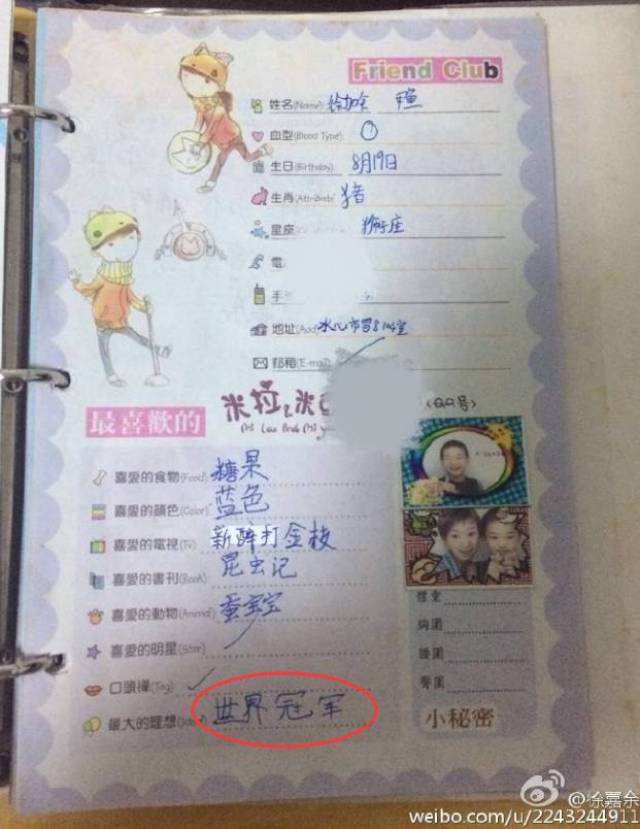 Friend Club
姓名(Name) 徐加余
血型(Blood Type) O
生日(Birthday) 8月19日
生肖 猪
星座 狮子座
電
手
地址(Add) 水心市
邮箱(E-mail)
(QQ号)
最喜歡的
米拉&米
喜愛的食物(Food) 糖果
喜愛的顏色(Color) 蓝色
喜愛的電視(TV) 新醉打金枝
喜愛的書刊(Book) 昆虫记
喜愛的動物(Animal) 蚕宝宝
喜愛的明星(Star)
口頭禪(Tag)
最大的理想 世界冠军
體重
胸圍
腰圍
臀圍
小秘密
@徐嘉余
weibo.com/u/2243244911